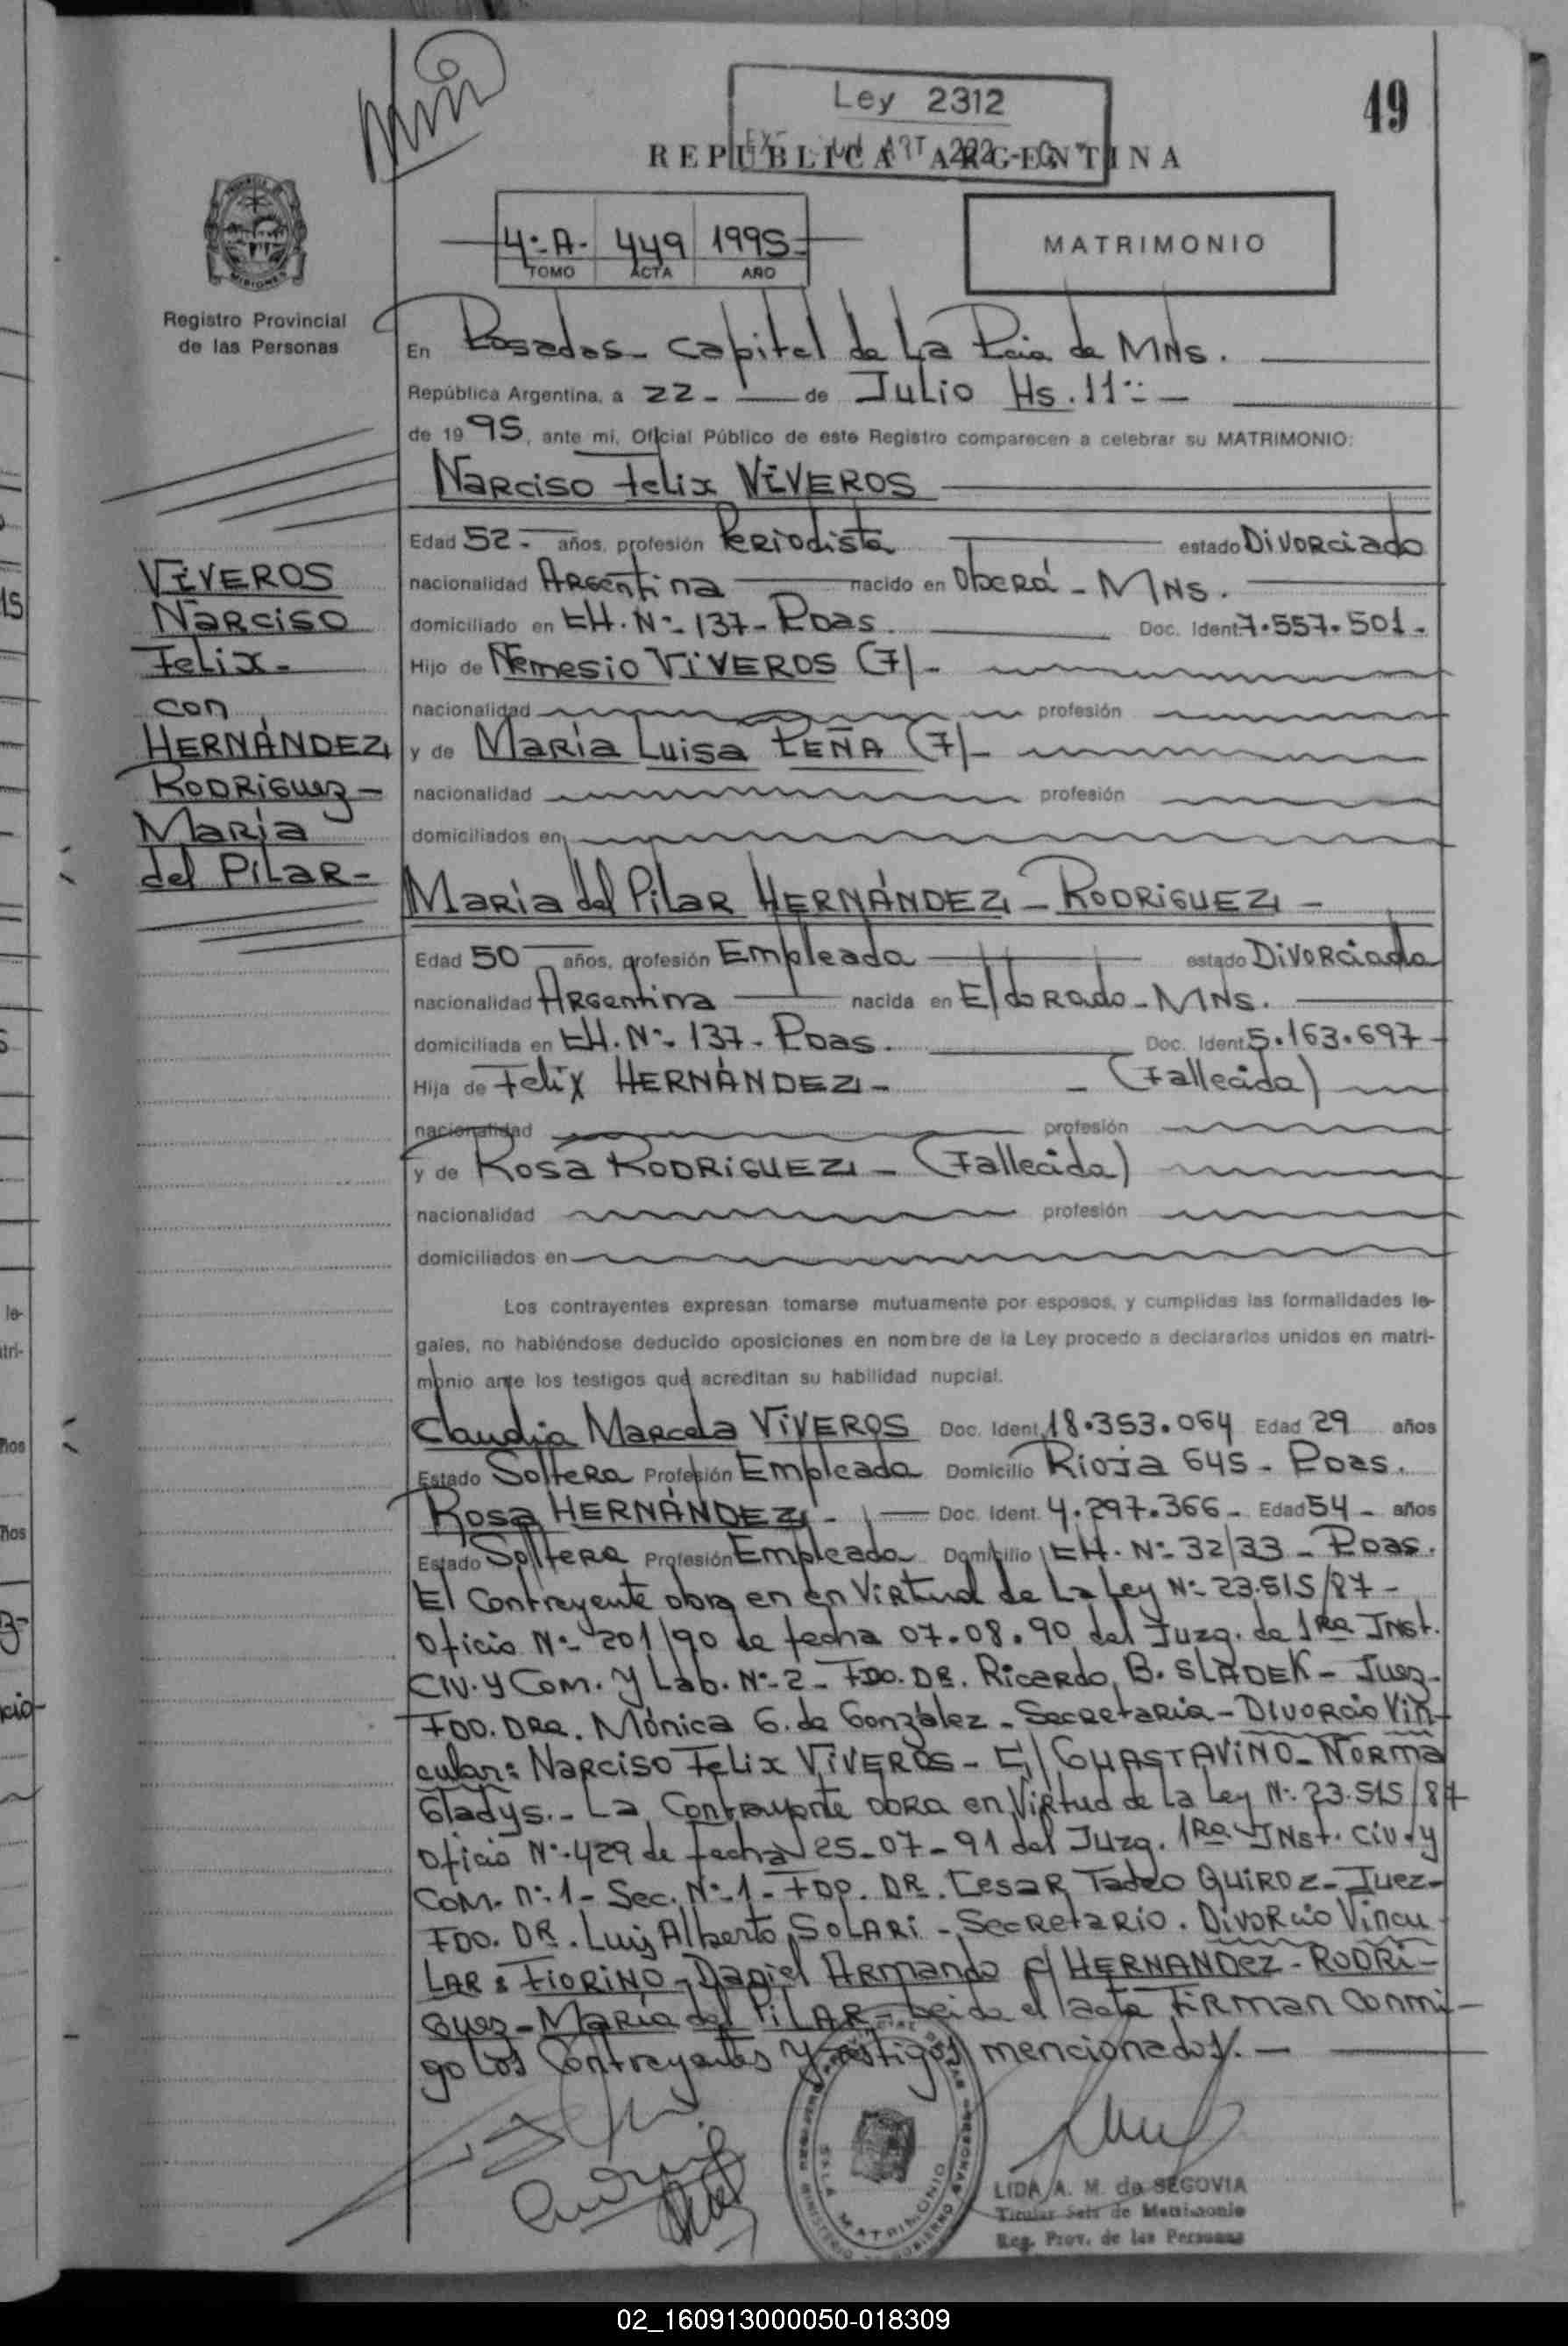 49
Ley 2312
REPUBLICA ARGENTINA
4º-A- 449 1995-
TOMO ACTA AÑO
MATRIMONIO
MISIONES
Registro Provincial
de las Personas
En Posadas- Capital de La Pcia de MNs.
República Argentina, a 22- de Julio Hs. 11:-
de 1995, ante mi, Oficial Público de este Registro comparecen a celebrar su MATRIMONIO:
Narciso Felix VIVEROS
Edad 52- años, profesión Periodista estado Divorciado
nacionalidad Argentina nacido en Oberá - MNs.
domiciliado en CH. Nº- 137- Pdas. Doc. Ident. 7.557.501-
Hijo de Nemesio VIVEROS (7)-
nacionalidad profesión
y de María Luisa PEÑA (7)-
nacionalidad profesión
domiciliados en
VIVEROS
Narciso
Felix-
con
HERNÁNDEZ
Rodriguez-
María
del Pilar-
María del Pilar HERNÁNDEZ - RODRIGUEZ -
Edad 50 años, profesión Empleada estado Divorciada
nacionalidad Argentina nacida en Eldorado - MNs.
domiciliada en CH. Nº- 137- Pdas. Doc. Ident. 5.163.697-
Hija de Felix HERNÁNDEZ - - (Fallecido)
nacionalidad profesión
y de Rosa RODRIGUEZ - (Fallecida)
nacionalidad profesión
domiciliados en
Los contrayentes expresan tomarse mutuamente por esposos, y cumplidas las formalidades le-
gales, no habiéndose deducido oposiciones en nombre de la Ley procedo a declararlos unidos en matri-
monio ante los testigos que acreditan su habilidad nupcial.
Claudia Marcela VIVEROS Doc. Ident. 18.353.064 Edad 29 años
Estado Soltera Profesión Empleada Domicilio Rioja 645- Pdas.
Rosa HERNÁNDEZ - Doc. Ident. 4.297.366- Edad 54- años
Estado Soltera Profesión Empleada Domicilio CH. Nº- 32/33 - Pdas.
El Contrayente obra en en Virtud de La Ley Nº- 23.515/87-
Oficio Nº- 201/90 de fecha 07.08.90 del Juzg. de 1Ra Inst.
Civ. y Com. y Lab. Nº-2- FDO. DR. Ricardo B. SLADEK- Juez-
FDO. DRa. Mónica G. de González - Secretaria - Divorcio Vin-
cular: Narciso Felix VIVEROS - C/ GUASTAVINO- Norma
Gladys.- La Contrayente obra en Virtud de la Ley Nº- 23.515/87
Oficio Nº-429 de fecha 25-07-91 del Juzg. 1Ra. Inst. Civ. y
Com. nº-1- Sec. Nº-1- FDO. DR. Cesar Tadeo QUIROZ- Juez-
FDO. DR. Luis Alberto SOLARI - Secretario. Divorcio Vincu-
LAR: FIORINO- Daniel Armando c/ HERNANDEZ- RODRI-
guez- María del PILAR- Leída el acta Firman conmi-
go Los Contrayentes y testigos mencionados.-
SALA MATRIMONIO
LIDA A. M. de SEGOVIA
Titular Sala de Matrimonio
Reg. Prov. de las Personas
02_160913000050-018309